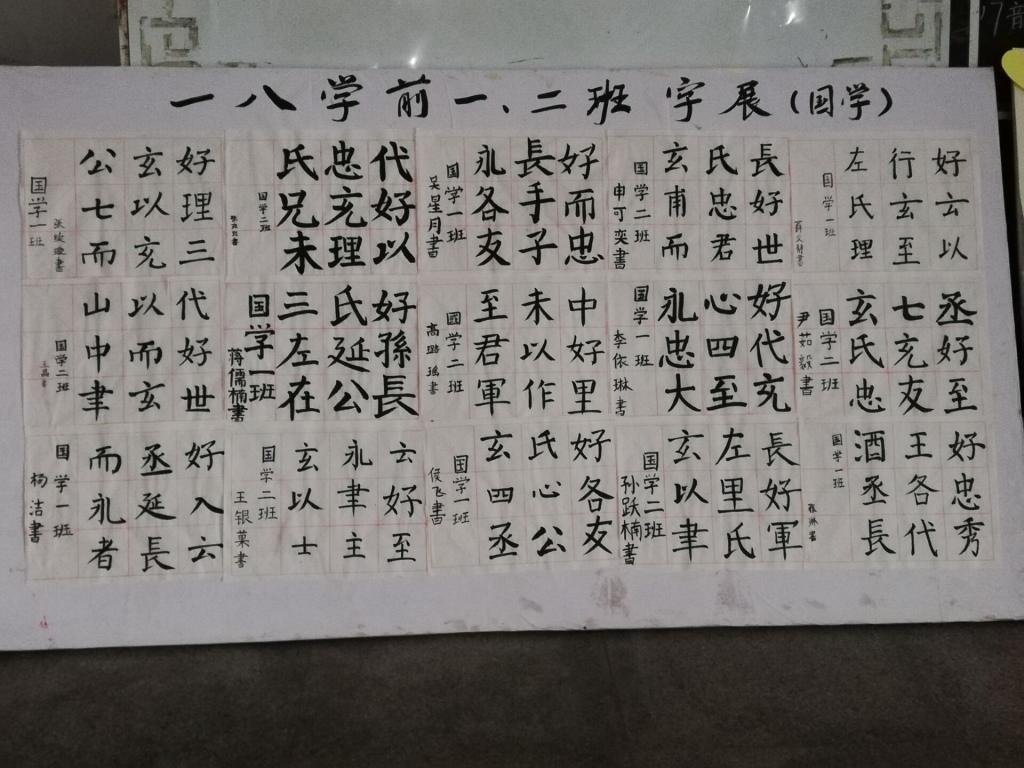 一八学前一、二班字展(国学)
好云以
行玄至
左氏理
国学一班
長好世
氏忠君
玄甫而
国学二班
申可奕書
好而忠
長手子
永各友
国学一班
吴星月書
代好以
忠充理
氏兄未
国学二班
好理三
玄以充
公七而
国学一班
丞好至
七充友
玄氏忠
国学二班
尹茹毅書
好代充
心四至
永忠大
国学一班
李依琳書
中好里
未以作
至君軍
國学二班
高璐瑶書
好孫長
氏延公
三左在
国学一班
蒋儒楠書
代好世
以而玄
山中聿
国学二班
好忠秀
王各代
酒丞長
国学一班
長好軍
左里氏
玄以聿
国学二班
孙跃楠書
好各友
氏心公
玄四丞
国学一班
侯飞書
云好至
永聿主
玄以士
国学二班
王银菓書
好入云
丞延長
而永者
国学一班
杨洁書